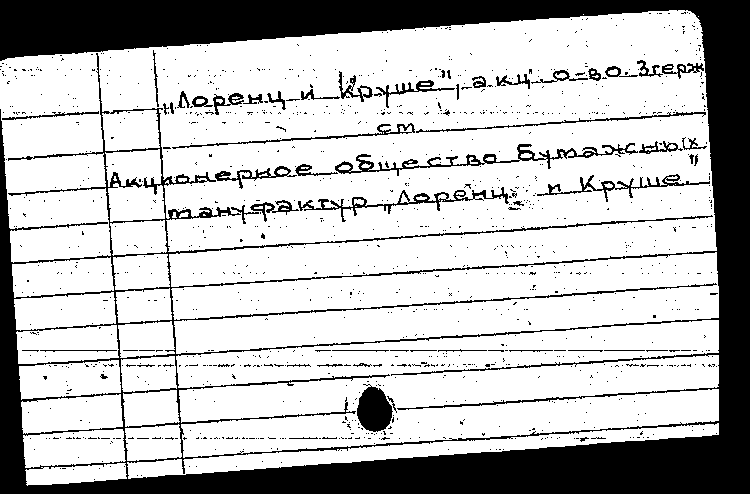 „Лоренц и Круше", акц. о-во. Згерж
см.
Акционерное общество бумажных
мануфактур „Лоренц и Круше."